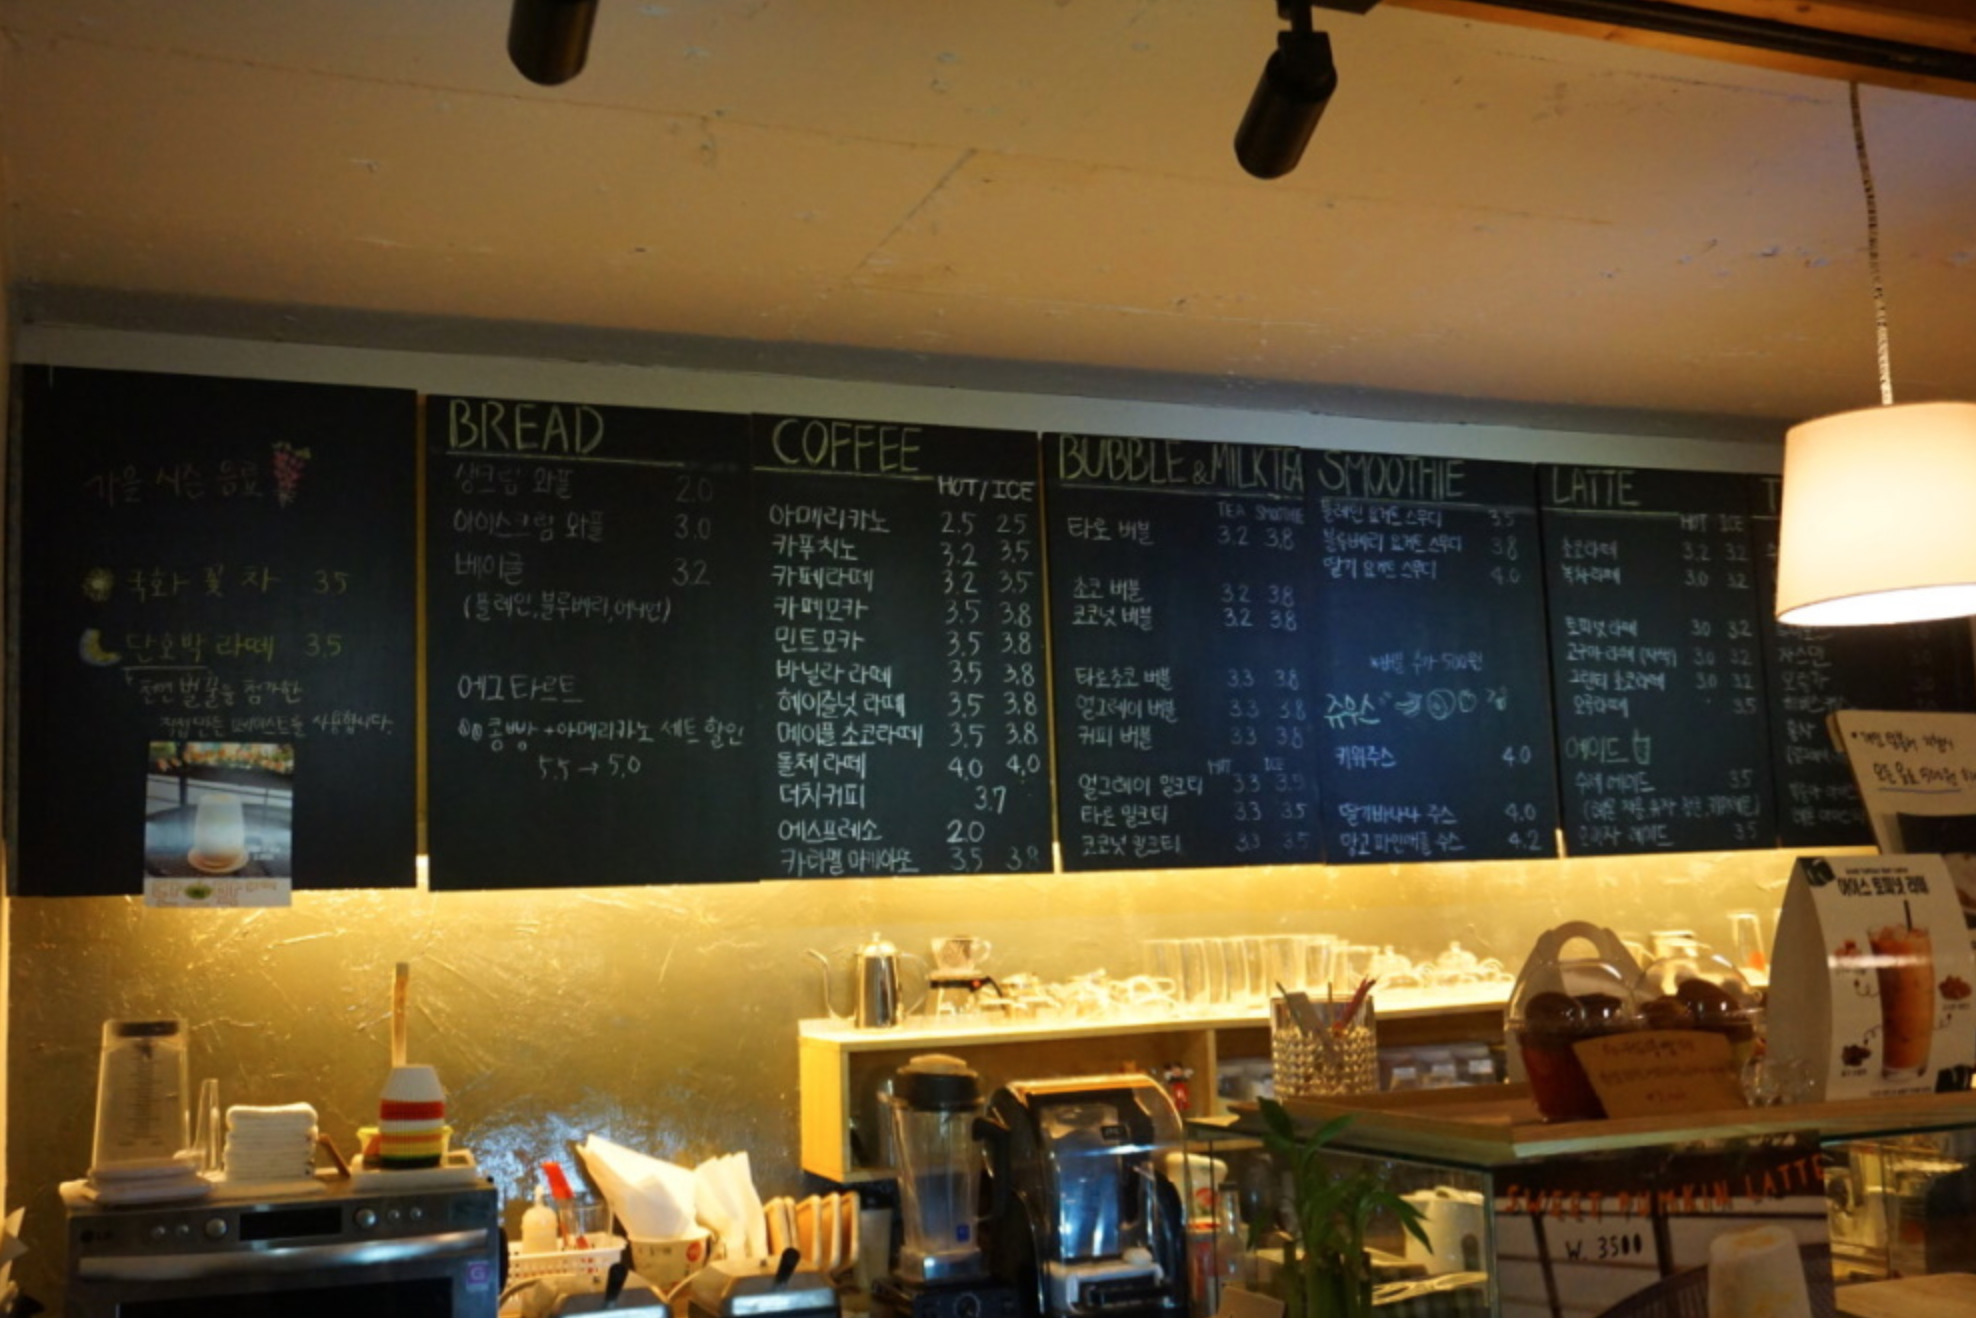 가을 시즌 음료
국화 꽃 차 3.5
단호박 라떼 3.5
천연벌꿀을 첨가한
직접만든 페이스트를 사용합니다.
BREAD
생크림 와플 2.0
아이스크림 와플 3.0
베이글 3.2
(플레인,블루베리,어니언)
에그타르트
콩빵 +아메리카노 세트 할인
5.5 → 5.0
COFFEE
HOT/ICE
아메리카노 2.5 2.5
카푸치노 3.2 3.5
카페라떼 3.2 3.5
카페모카 3.5 3.8
민트모카 3.5 3.8
바닐라 라떼 3.5 3.8
헤이즐넛 라떼 3.5 3.8
메이플 초코라떼 3.5 3.8
돌체 라떼 4.0 4.0
더치커피 3.7
에스프레소 2.0
카라멜 마끼아또 3.5 3.8
BUBBLE & MILKTEA
TEA SMOOTHIE
타로 버블 3.2 3.8
초코 버블 3.2 3.8
코코넛 버블 3.2 3.8
타로초코 버블 3.3 3.8
얼그레이 버블 3.3 3.8
커피 버블 3.3 3.8
HOT ICE
얼그레이 밀크티 3.3 3.5
타로 밀크티 3.3 3.5
코코넛 밀크티 3.3 3.5
SMOOTHIE
플레인 요거트 스무디 3.5
블루베리 요거트 스무디 3.8
딸기 요거트 스무디 4.0
*버블 추가 500원
쥬우스
키위주스 4.0
딸기바나나 주스 4.0
망고파인애플 주스 4.2
LATTE
HOT ICE
초코라떼 3.2 3.2
녹차라떼 3.0 3.2
토피넛 라떼 3.0 3.2
고구마 라떼 (자색) 3.0 3.2
그린티 초코라떼 3.0 3.2
오곡라떼 3.5
에이드
수제 에이드 3.5
에이드 3.5
T
자스민
아이스 토피넛 라떼
SWEET PUMKIN LATTE
W. 3500